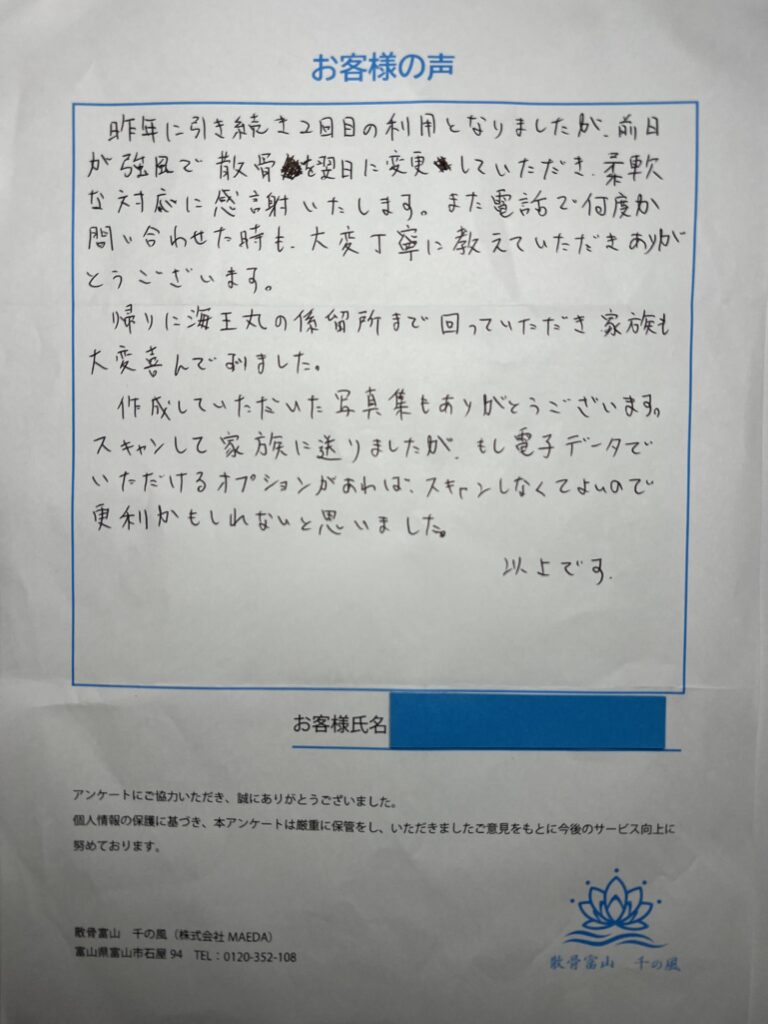 お客様の声
昨年に引き続き2回目の利用となりましたが、前日
が強風で散骨を翌日に変更していただき、柔軟
な対応に感謝いたします。また電話で何度か
問い合わせた時も、大変丁寧に教えていただきありが
とうございます。
帰りに海王丸の係留所まで回っていただき家族も
大変喜んでおりました。
作成していただいた写真集もありがとうございます。
スキャンして家族に送りましたが、もし電子データで
いただけるオプションがあれば、スキャンしなくてよいので
便利かもしれないと思いました。
以上です。
お客様氏名
アンケートにご協力いただき、誠にありがとうございました。
個人情報の保護に基づき、本アンケートは厳重に保管をし、いただきましたご意見をもとに今後のサービス向上に
努めております。
散骨富山 千の風(株式会社 MAEDA)
富山県富山市石屋 94 TEL:0120-352-108
散骨富山 千の風